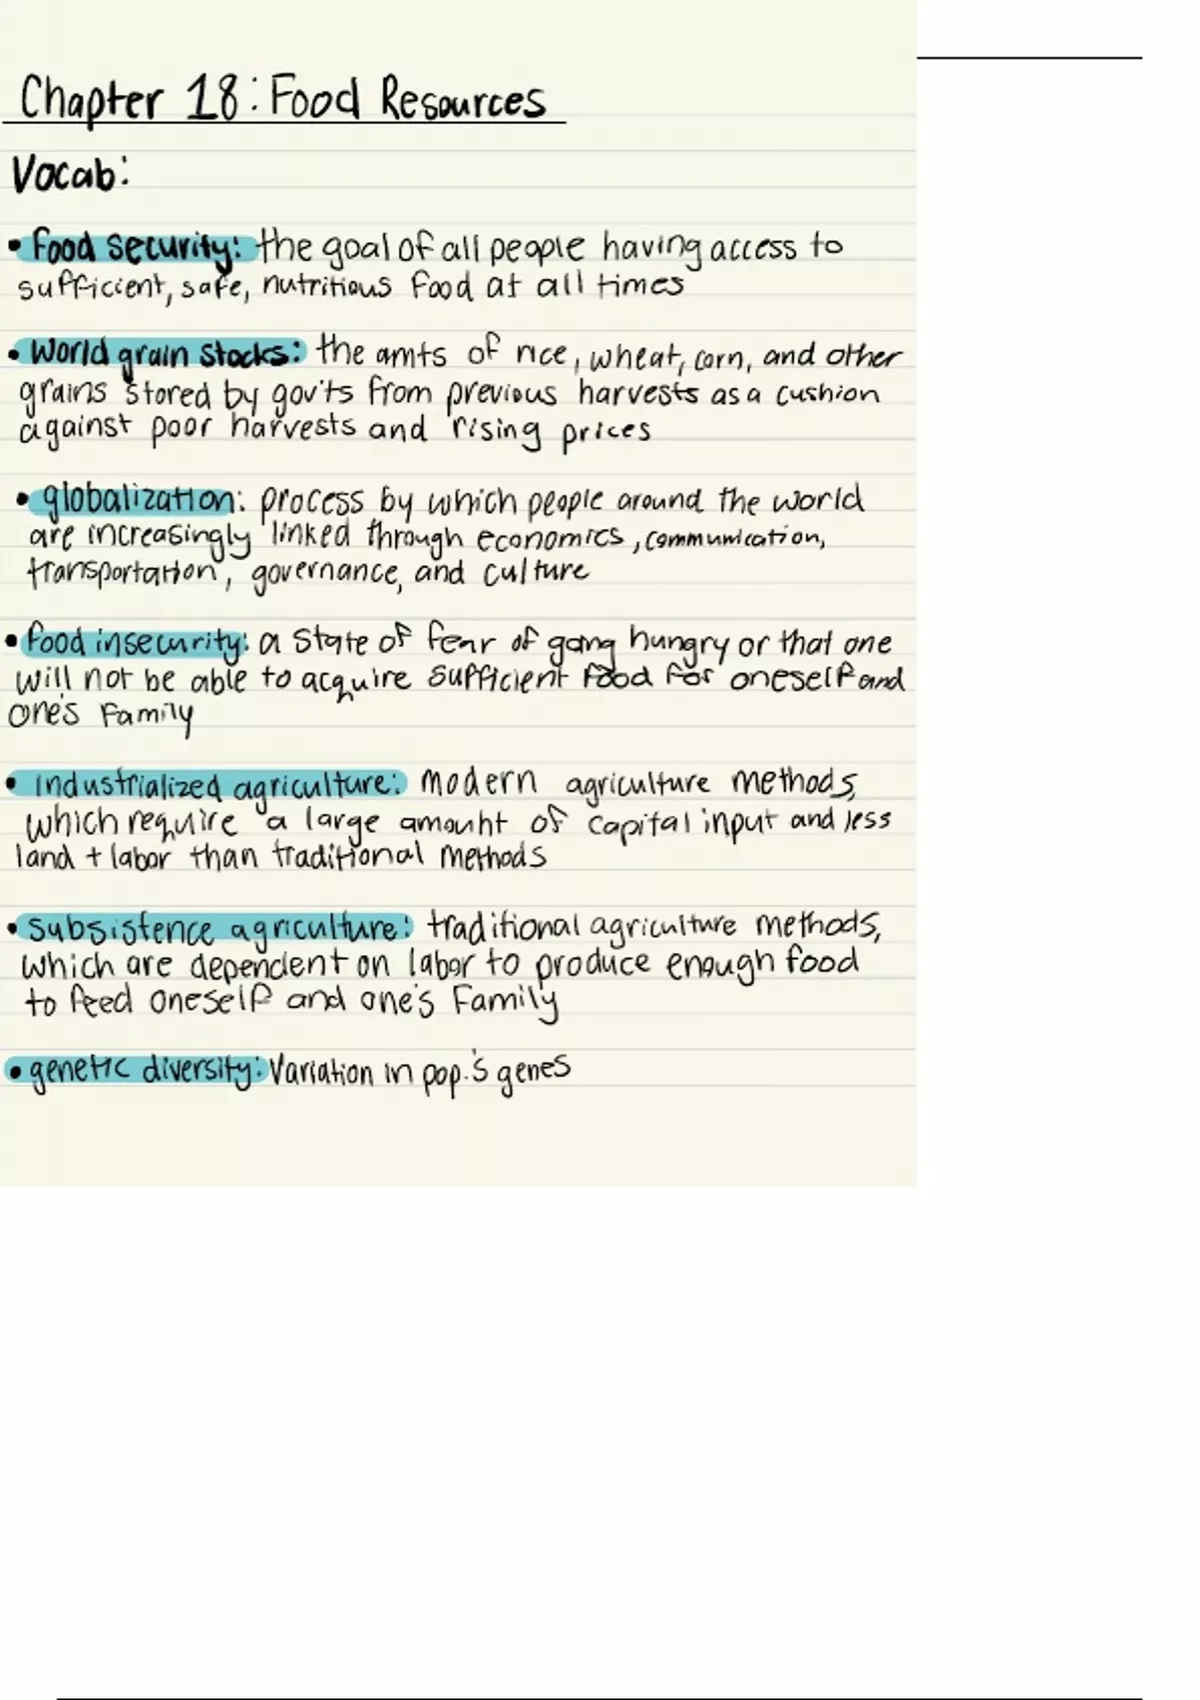 Chapter 18: Food Resources
Vocab:
• Food security: the goal of all people having access to
sufficient, safe, nutritious food at all times
• World grain stocks: the amts of rice, wheat, corn, and other
grains stored by gov'ts from previous harvests as a cushion
against poor harvests and rising prices
• globalization: process by which people around the world
are increasingly linked through economics, communication,
transportation, governance, and culture
• food insecurity: a state of fear of going hungry or that one
will not be able to acquire sufficient food for oneself and
one's family
• industrialized agriculture: modern agriculture methods,
which require a large amount of capital input and less
land + labor than traditional methods
• subsistence agriculture: traditional agriculture methods,
which are dependent on labor to produce enough food
to feed oneself and one's family
• genetic diversity: Variation in pop.'s genes